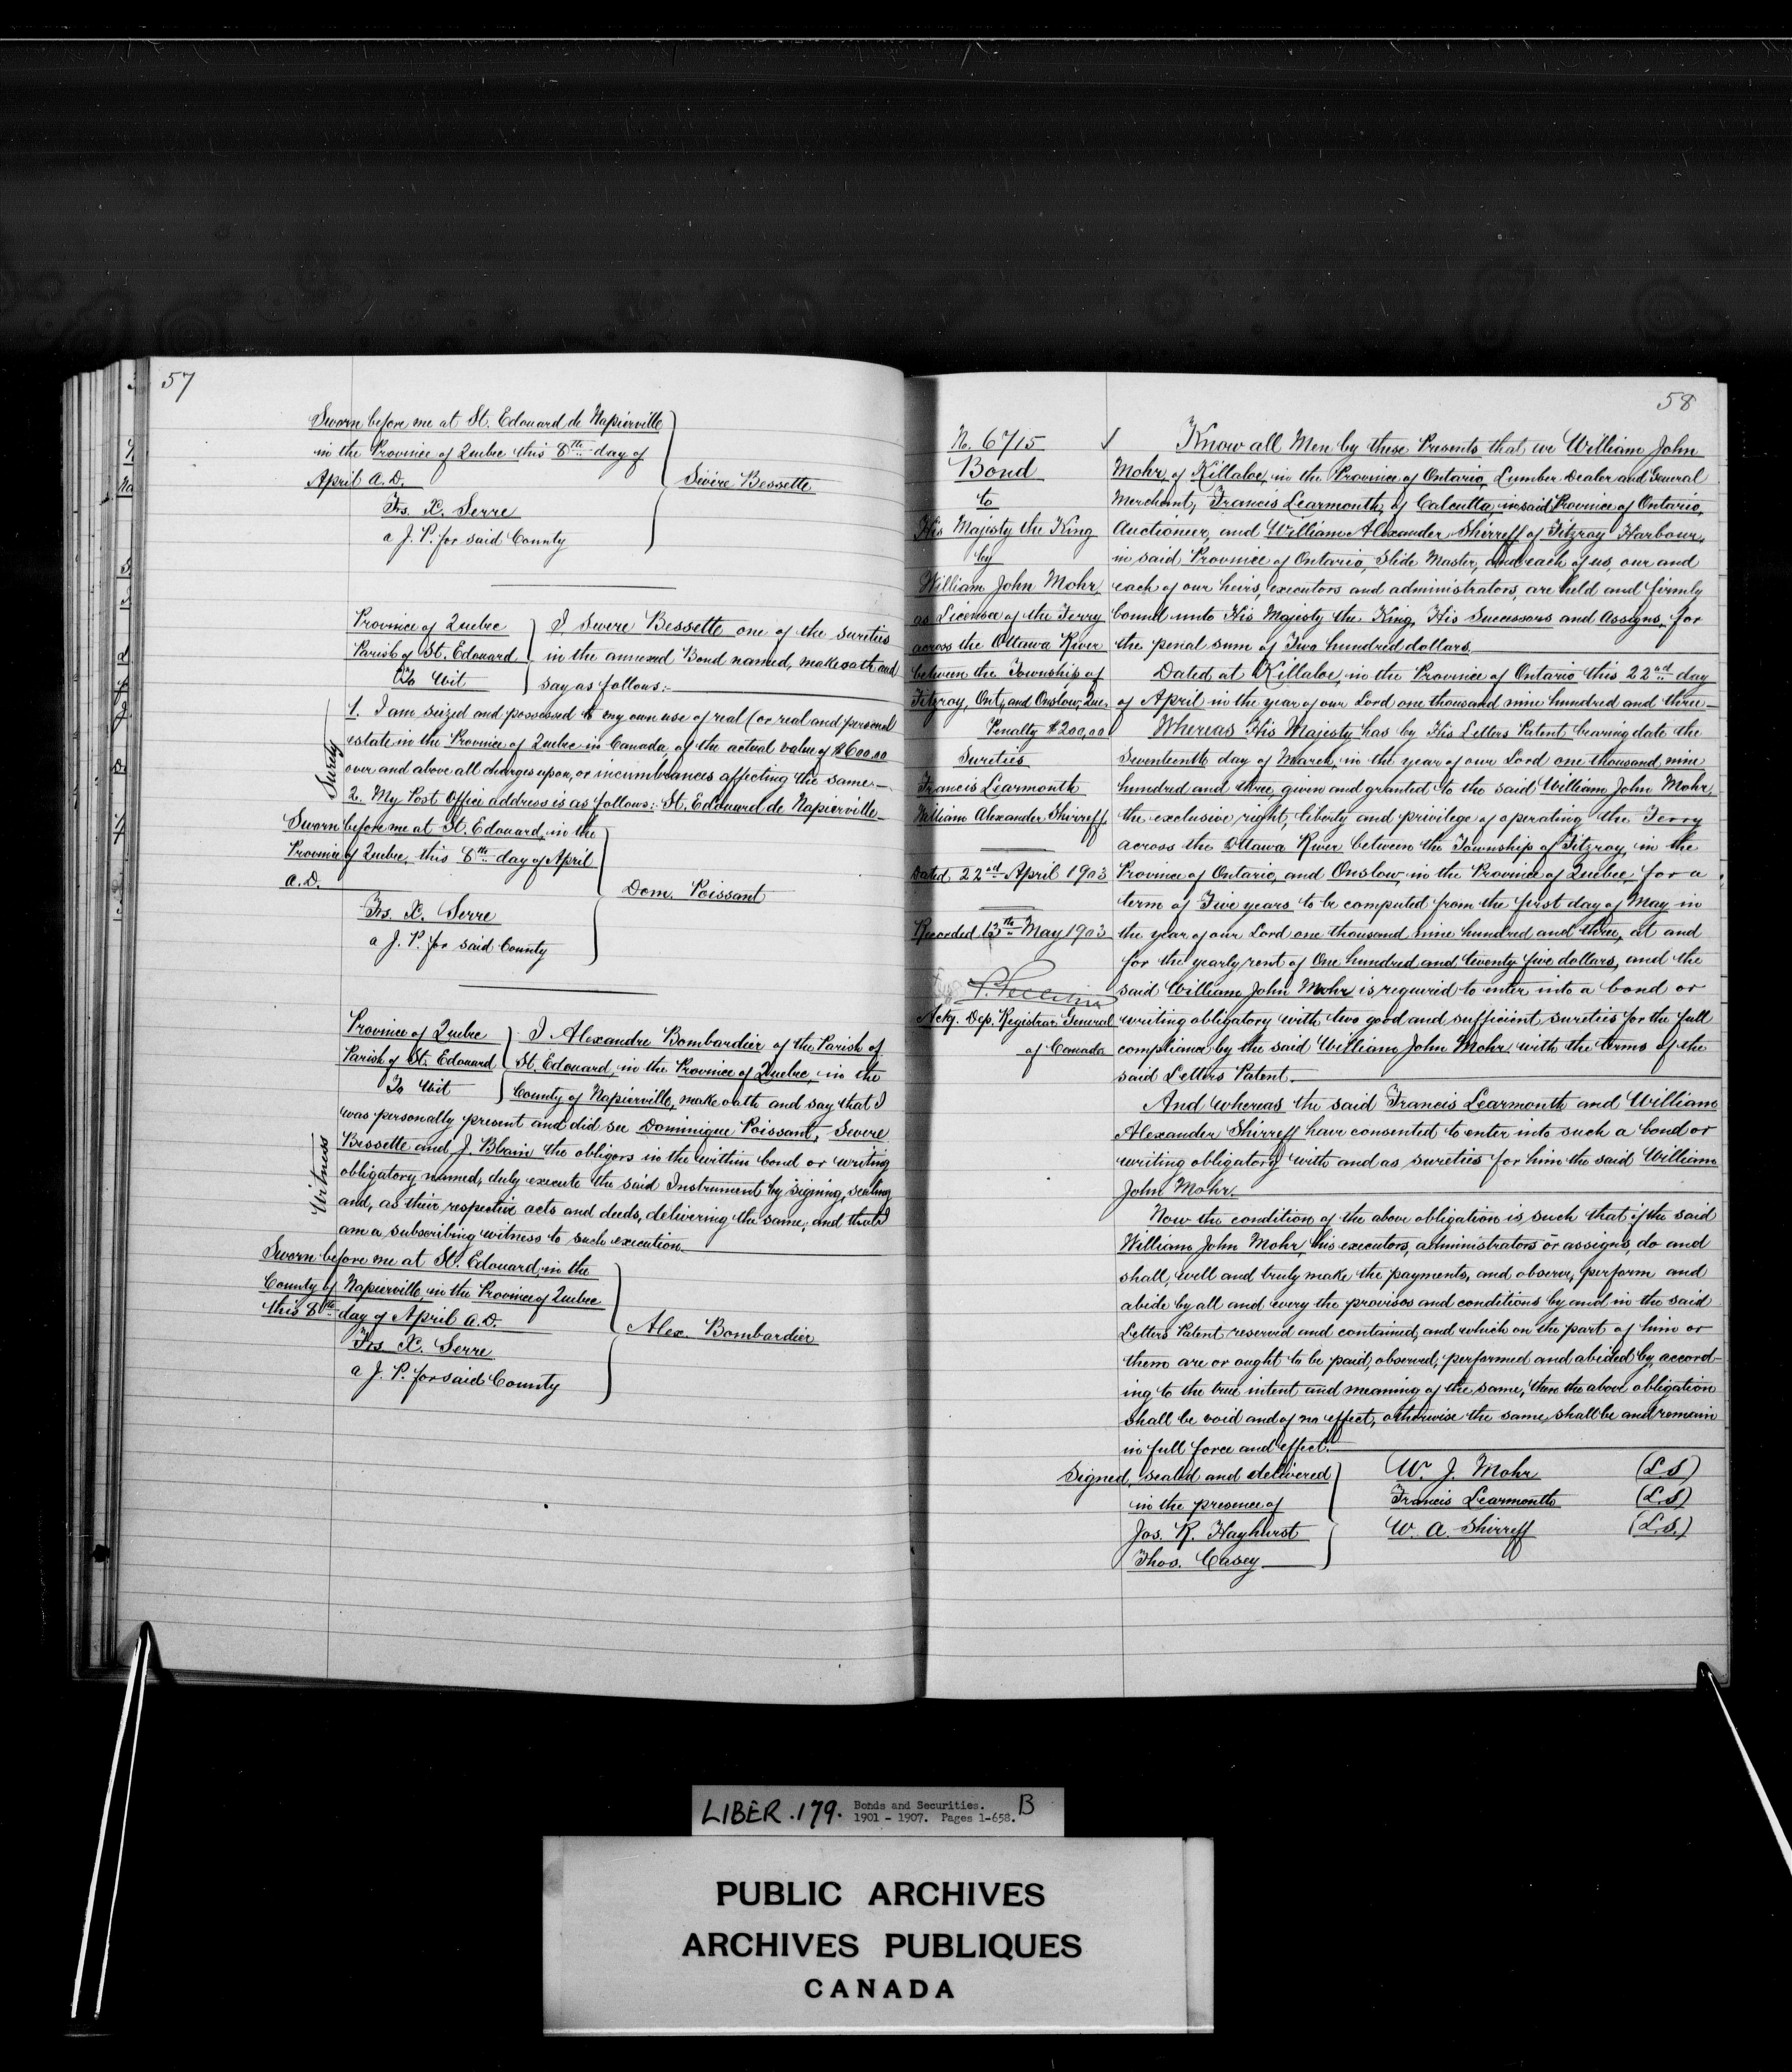 57
Sworn before me at St. Edouard de Napierville
in the Province of Quebec this 8th day of
April A.D.
Sévère Bessette
Frs. X. Serre
a J. P. for said County
Province of Quebec
Parish of St. Edouard
To Wit
I Severe Bessette one of the sureties
in the annexed Bond named, make oath and
say as follows:-
Surety
1. I am seized and possessed to my own use of real (or real and personal
estate in the Province of Quebec in Canada of the actual value of $600.00
over and above all charges upon, or incumbrances affecting the same-
2. My Post Office address is as follows:- St. Edouard de Napierville
Sworn before me at St. Edouard, in the
Province of Quebec, this 8th day of April
A.D.
Dom. Poissant
Frs. X. Serre
a J. P. for said County
Province of Quebec
Parish of St. Edouard
To Wit
I Alexandre Bombardier of the Parish of
St. Edouard, in the Province of Quebec, in the
County of Napierville, make oath and say that I
was personally present and did see Dominique Poissant, Severe
Bessette and J. Blain the obligors in the within bond or writing
obligatory named, duly execute the said Instrument by signing, sealing
and, as their respective acts and deeds, delivering the same, and that I
am a subscribing witness to such execution.
Witness
Sworn before me at St. Edouard, in the
County of Napierville, in the Province of Quebec
this 8th day of April A.D.
Alex. Bombardier
Frs. X. Serre
a J. P. for said County
58
No. 6715
Bond
to
His Majesty the King
by
William John Mohr,
as Licensee of the Ferry
across the Ottawa River
between the Township of
Fitzroy, Ont., and Onslow, Que.
Penalty $200.00
Sureties
Francis Learmonth
William Alexander Shirreff
Dated 22nd April 1903
Recorded 13th May 1903
Actg. Dep. Registrar General
of Canada
Know all Men by these Presents that we William John
Mohr, of Killaloe, in the Province of Ontario, Lumber Dealer and General
Merchant, Francis Learmonth, of Calcutta, in said Province of Ontario,
Auctioneer, and William Alexander Shirreff of Fitzroy Harbour,
in said Province of Ontario, Slide Master, and each of us, our and
each of our heirs, executors and administrators, are held and firmly
bound unto His Majesty the King, His Successors and Assigns, for
the penal sum of Two hundred dollars.
Dated at Killaloe, in the Province of Ontario this 22nd day
of April in the year of our Lord one thousand nine hundred and three-
Whereas His Majesty has by His Letters Patent bearing date the
Seventeenth day of March, in the year of our Lord one thousand nine
hundred and three, given and granted to the said William John Mohr,
the exclusive right, liberty and privilege of operating the Ferry
across the Ottawa River between the Township of Fitzroy, in the
Province of Ontario, and Onslow, in the Province of Quebec, for a
term of Five years to be computed from the first day of May in
the year of our Lord one thousand nine hundred and three, at and
for the yearly rent of One hundred and twenty five dollars, and the
said William John Mohr is required to enter into a bond or
writing obligatory with two good and sufficient sureties for the full
compliance by the said William John Mohr with the terms of the
said Letters Patent.
And whereas the said Francis Learmonth and William
Alexander Shirreff have consented to enter into such a bond or
writing obligatory with and as sureties for him the said William
John Mohr.
Now the condition of the above obligation is such that if the said
William John Mohr, his executors, administrators or assigns, do and
shall, well and truly make the payments, and observe, perform and
abide by all and every the provisos and conditions by and in the said
Letters Patent reserved and contained, and which on the part of him or
them are or ought to be paid, observed, performed and abided by, accord-
ing to the true intent and meaning of the same, then the above obligation
shall be void and of no effect, otherwise the same shall be and remain
in full force and effect.
Signed, sealed and delivered
in the presence of
Jos. R. Hayhurst
Thos. Casey
W. J. Mohr (L.S)
Francis Learmonth (L.S)
W. A. Shirreff (L.S.)
LIBER .179. Bonds and Securities. B
1901 - 1907. Pages 1-658.
PUBLIC ARCHIVES
ARCHIVES PUBLIQUES
CANADA